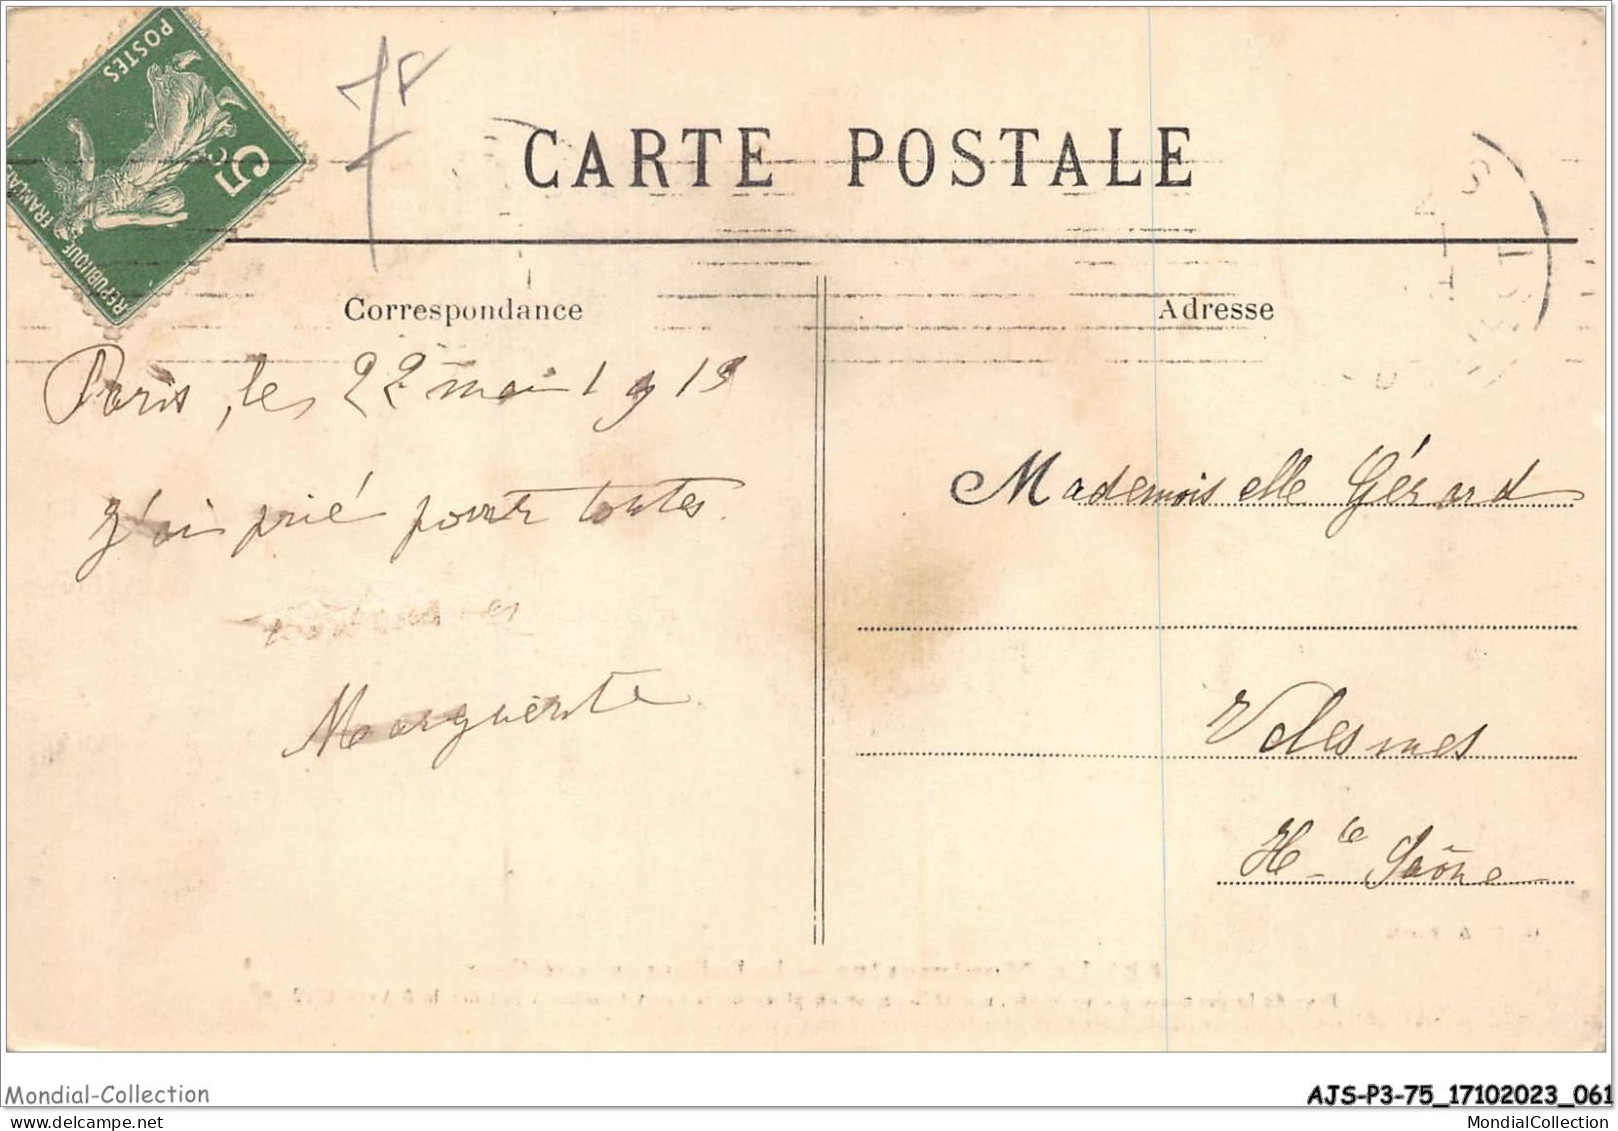 POSTES
5c
REPUBLIQUE FRANÇAISE
7F
CARTE POSTALE
Correspondance
Adresse
Paris, le 22 mai 1913
J'ai prié pour toutes.
Marguerite
Mademoiselle Gérard
Velesmes
Hte Saône
Mondial-Collection
AJS-P3-75_17102023_061
MondialCollection.com